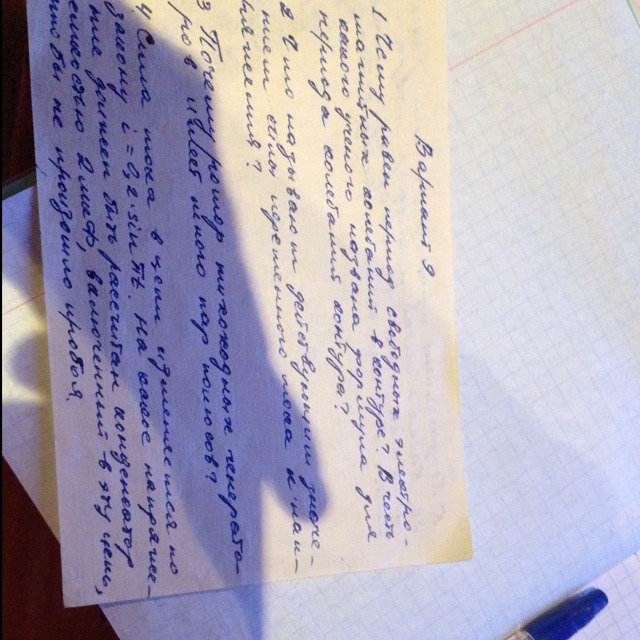 Вариант 9
1 Чему равен период свободных электро-
магнитных колебаний в контуре? В честь
какого учёного названа формула для
периода колебаний контура?
2 Что называют действующими значе-
ниями силы переменного тока и нап-
ряжения?
3 Почему ротор тихоходных генерато-
ров имеет много пар полюсов?
4 Сила тока в цепи изменяется по
закону i = 8,5 sin πt. На какое напряже-
ние должен быть рассчитан конденсатор
ёмкостью 2 мкФ, включенный в эту цепь,
чтобы не произошло пробоя.